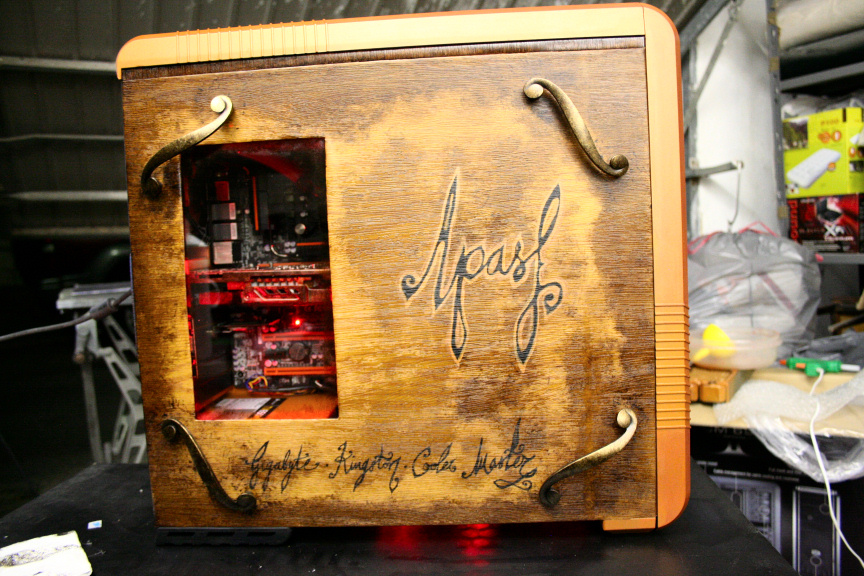 Apasl
Gigabyte . Kingston . Cooler Master